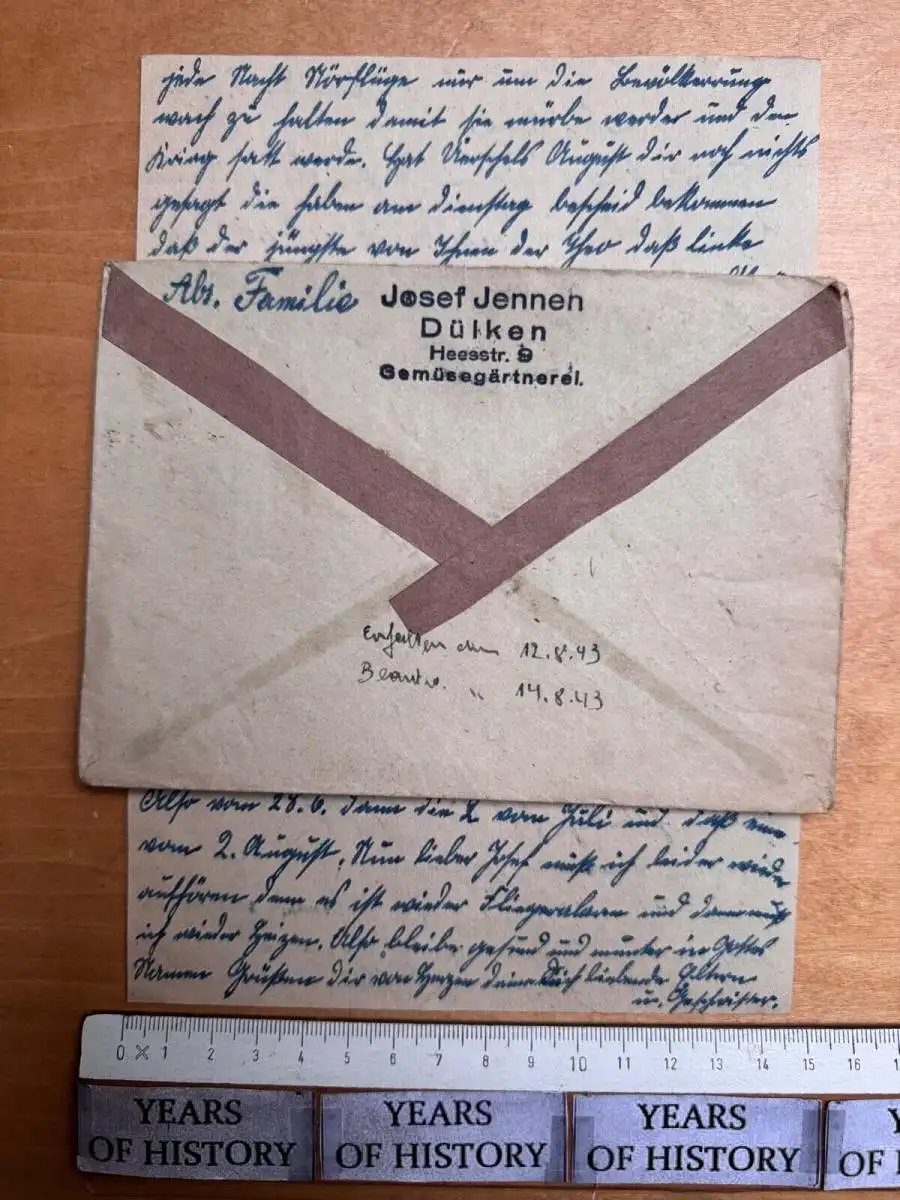 jede Nacht Störflüge nur um die Bevölkerung
wach zu halten damit sie mürbe werden und den
Krieg satt werde. Hat Vierschels August dir noch nichts
gesagt die haben am dienstag bescheid bekommen
daß der jüngste von Ihnen der Theo daß linke
Abs. Familie Josef Jennen
Dülken
Heesstr. 9
Gemüsegärtnerei.
Erhalten am 12.8.43
Beantw. " 14.8.43
Also vom 28.6. dann die 2 vom Juli und daß eine
vom 2. August. Nun lieber Josef muß ich leider wieder
aufhören denn es ist wieder Fliegeralarm und dann muß
ich wieder Heizen. Also bleibe gesund und munter in Gottes
Namen Grüßen dir von Herzen deine dich liebende Eltern
u. Geschwister.
0 1 2 3 4 5 6 7 8 9 10 11 12 13 14 15 16
YEARS OF HISTORY
YEARS OF HISTORY
YEARS OF HISTORY
OF